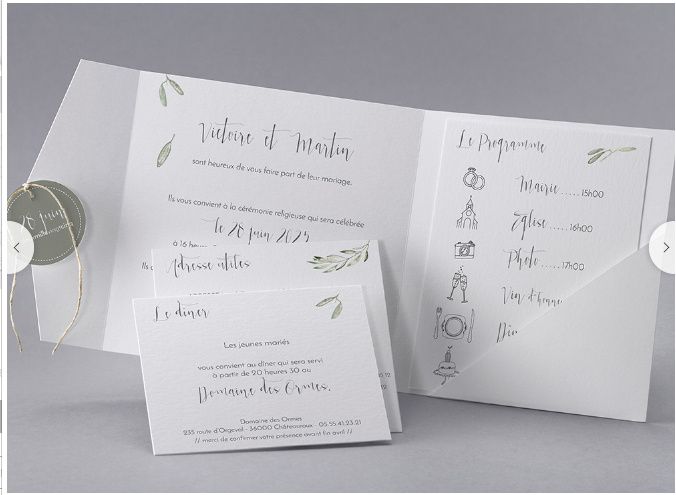 Victoire et Martin
sont heureux de vous faire part de leur mariage.
Ils vous convient à la cérémonie religieuse qui sera célébrée
le 28 juin 2025
à 16 heures
28 juin
Le Programme
Mairie.....15h00
Eglise.....16h00
Photo.....17h00
Vin d'honne
Dîn
Adresse utiles
Le dîner
Les jeunes mariés
vous convient au dîner qui sera servi
à partir de 20 heures 30 au
Domaine des Ormes.
Domaine des Ormes
235 route d'Orgeval - 36000 Châteauroux - 05.55.41.23.21
// merci de confirmer votre présence avant fin avril //